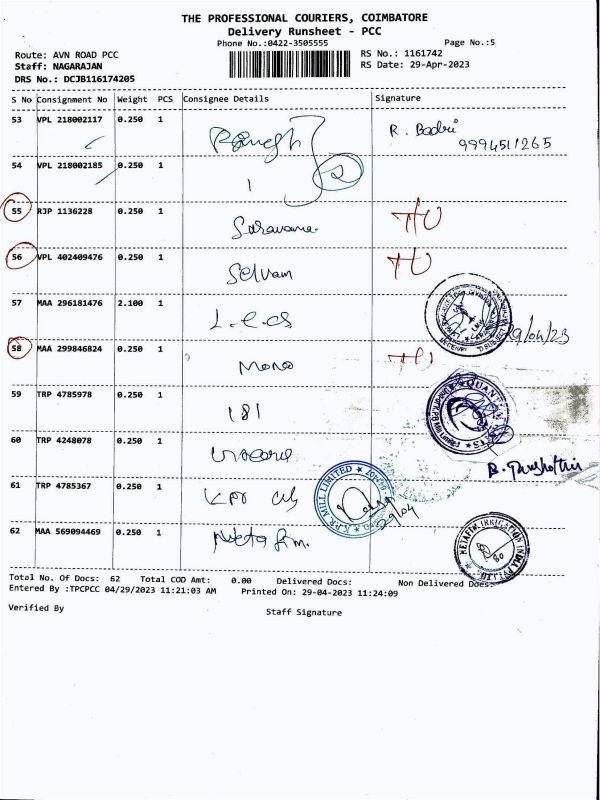 THE PROFESSIONAL COURIERS, COIMBATORE
Delivery Runsheet - PCC
Phone No.:0422-3505555
Page No.:5
Route: AVN ROAD PCC
RS No.: 1161742
Staff: NAGARAJAN
RS Date: 29-Apr-2023
DRS No.: DCJB116174205
S No Consignment No Weight PCS Consignee Details Signature
53 VPL 218002117 0.250 1 R. Badri
9994511265
54 VPL 218002185 0.250 1
55 RJP 1136228 0.250 1 Saravana
56 VPL 402409476 0.250 1 Selvam
57 MAA 296181476 2.100 1 29/04/23
58 MAA 299846824 0.250 1 Mono
59 TRP 4785978 0.250 1 181 QUANTUM
60 TRP 4248078 0.250 1
61 TRP 4785367 0.250 1 MILL LIMITED 29/04
62 MAA 569094469 0.250 1 METAFIM IRRIGATION INDIA PVT. LTD.
Total No. Of Docs: 62 Total COD Amt: 0.00 Delivered Docs: Non Delivered Docs:
Entered By :TPCPCC 04/29/2023 11:21:03 AM Printed On: 29-04-2023 11:24:09
Verified By Staff Signature